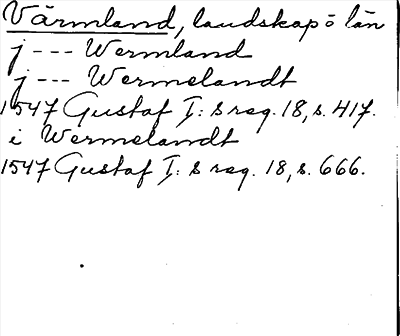 Värmland, landskap o län
j --- Wermland
j --- Wermelandt
1547 Gustaf I: s reg. 18, s. 417.
i Wermelandt
1547 Gustaf I: s reg. 18, s. 666.